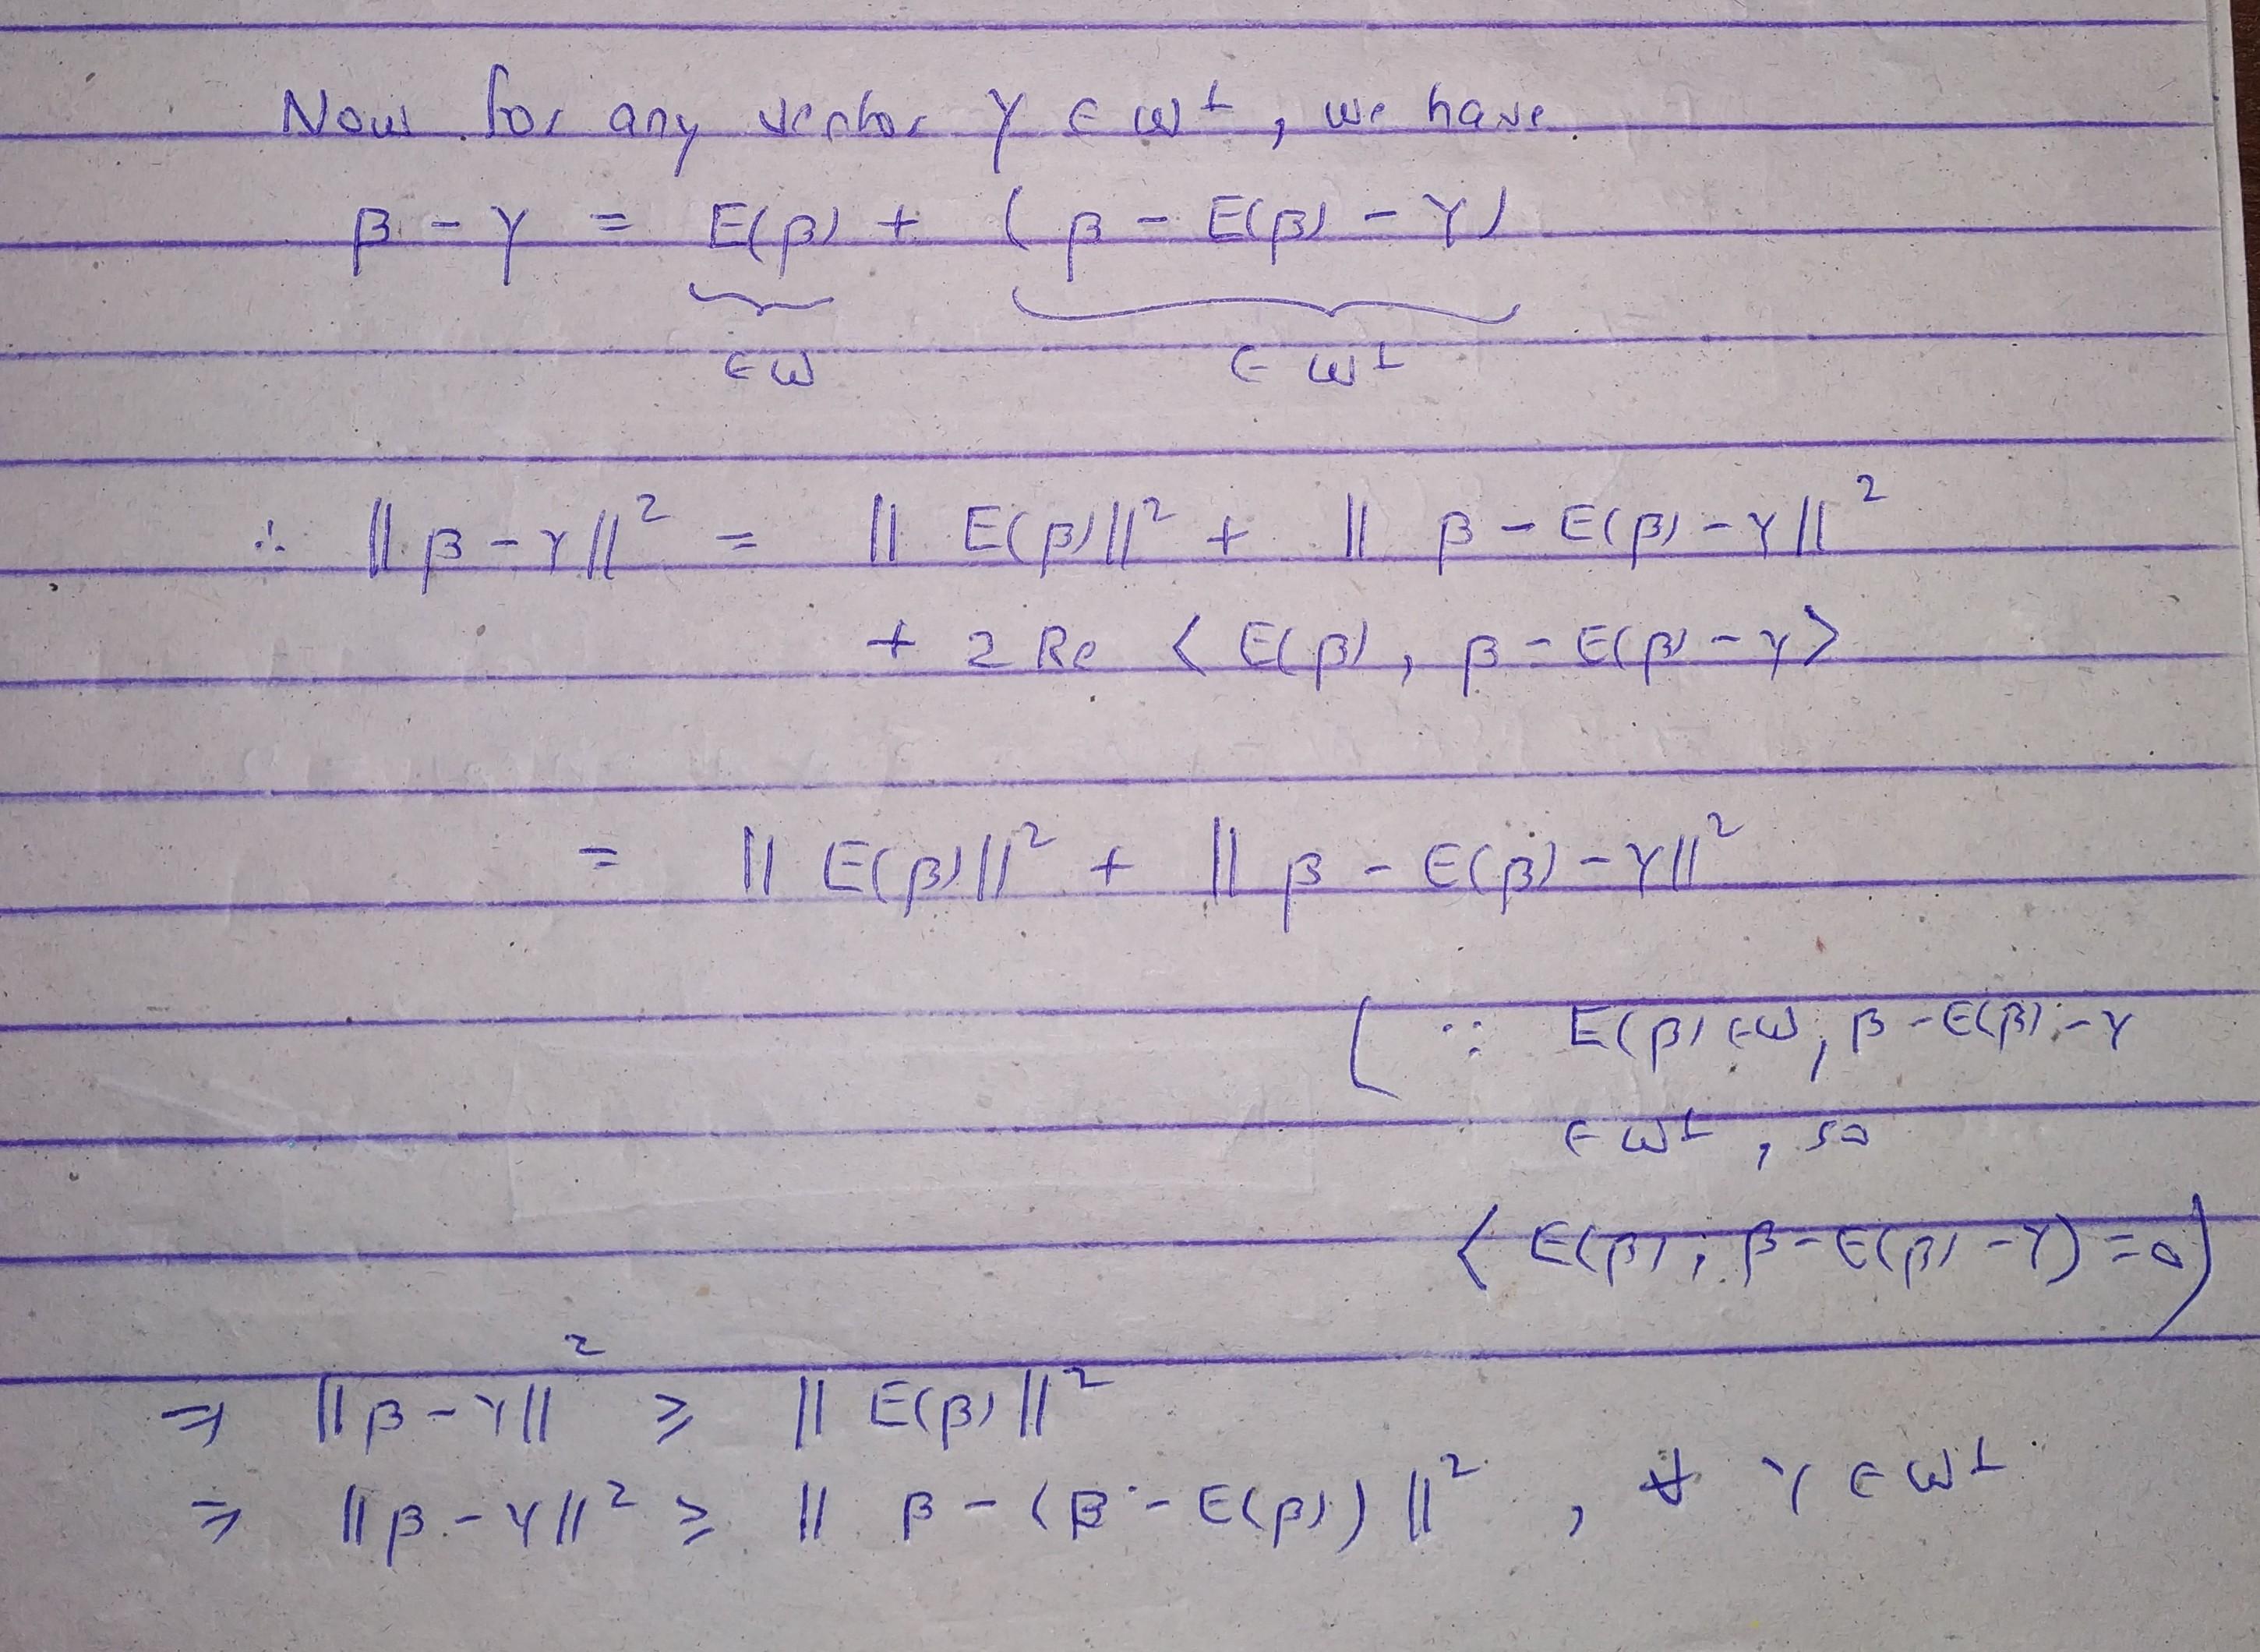 Now for any vector γ ∈ W⊥, we have.
β - γ = E(β) + (β - E(β) - γ)
∈ W ∈ W⊥
∴ ||β - γ||² = || E(β)||² + || β - E(β) - γ||²
+ 2 Re < E(β), β - E(β) - γ>
= || E(β)||² + || β - E(β) - γ||²
( ∵ E(β) ∈ W, β - E(β) - γ
∈ W⊥, so
< E(β), β - E(β) - γ) = 0)
⇒ ||β - γ||² ≥ || E(β) ||²
⇒ ||β - γ||² ≥ || β - (β - E(β)) ||², ∀ γ ∈ W⊥